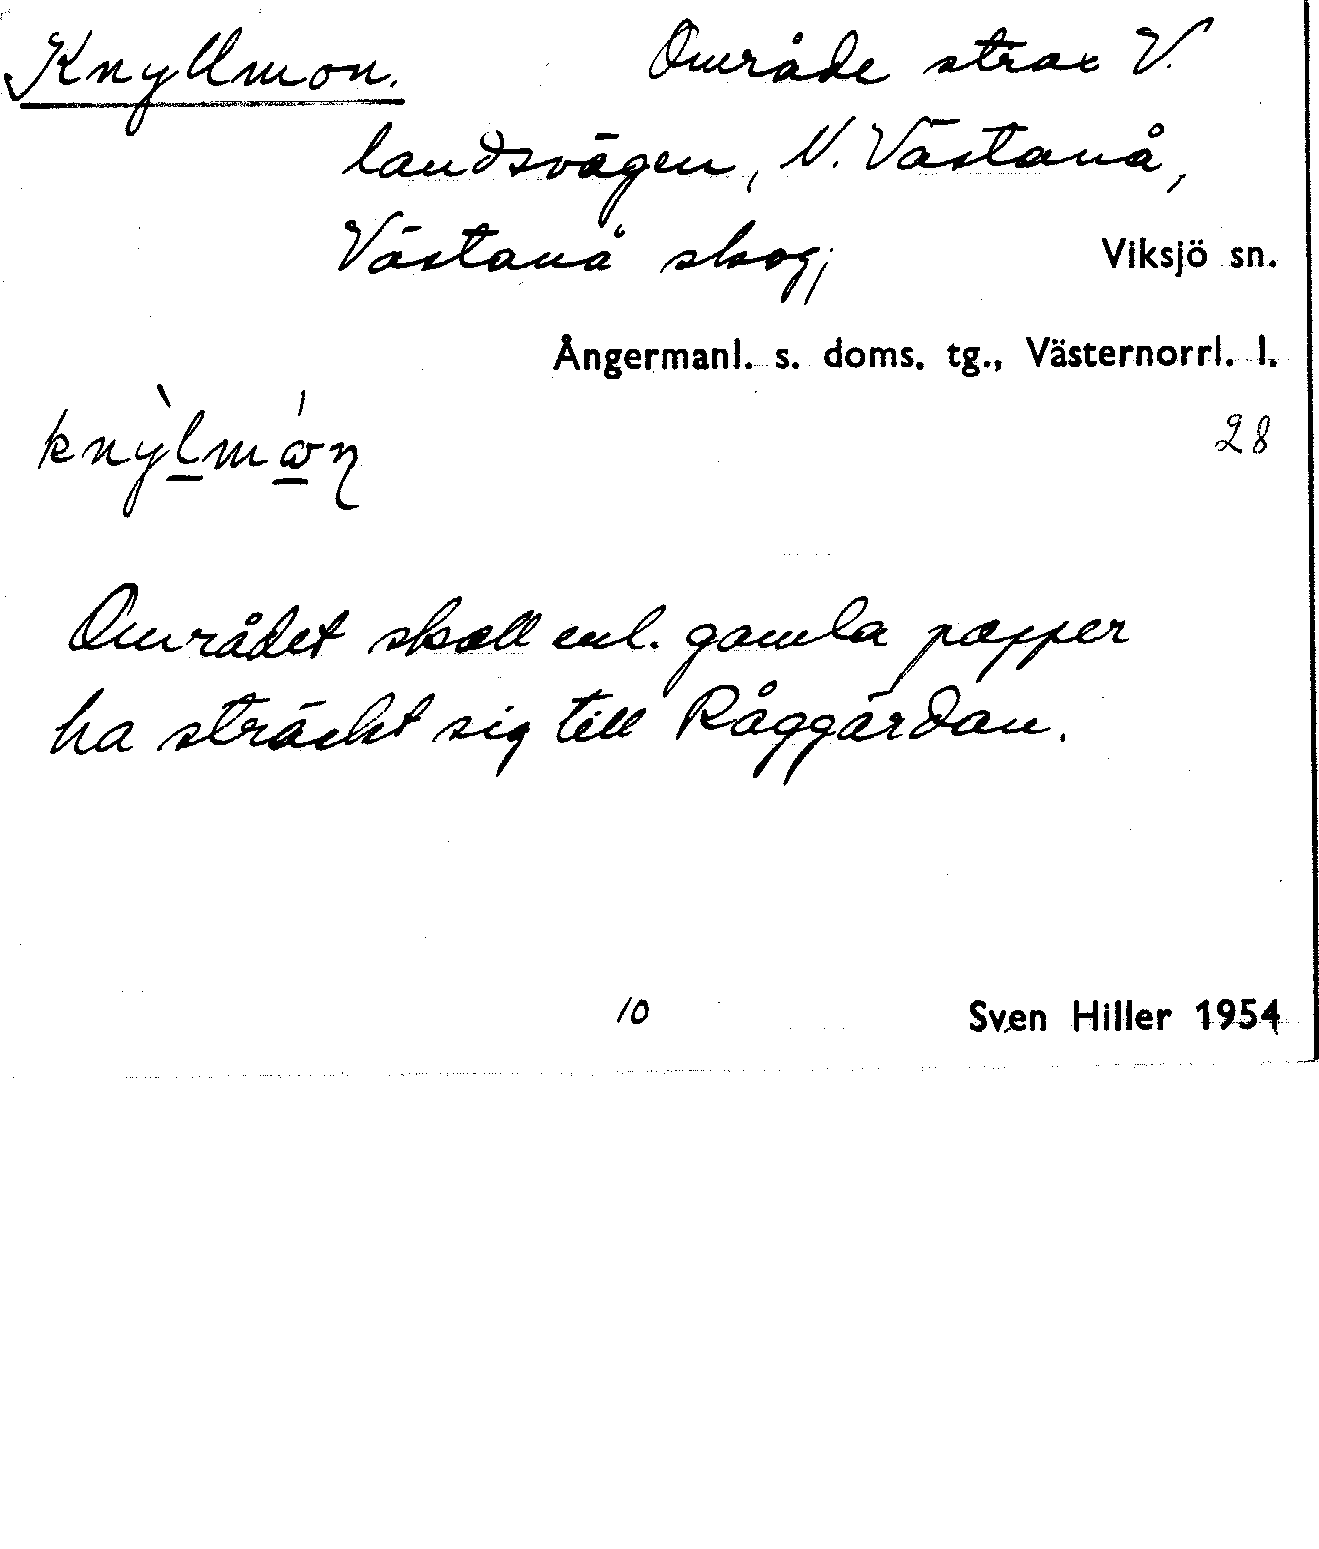 Knyllmon. Område strax V.
landsvägen, N. Västanå,
Västanå skog; Viksjö sn.
Ångermanl. s. doms. tg., Västernorrl. l.
28
Området skall enl. gamla papper
ha sträckt sig till Råggärdan.
10 Sven Hiller 1954